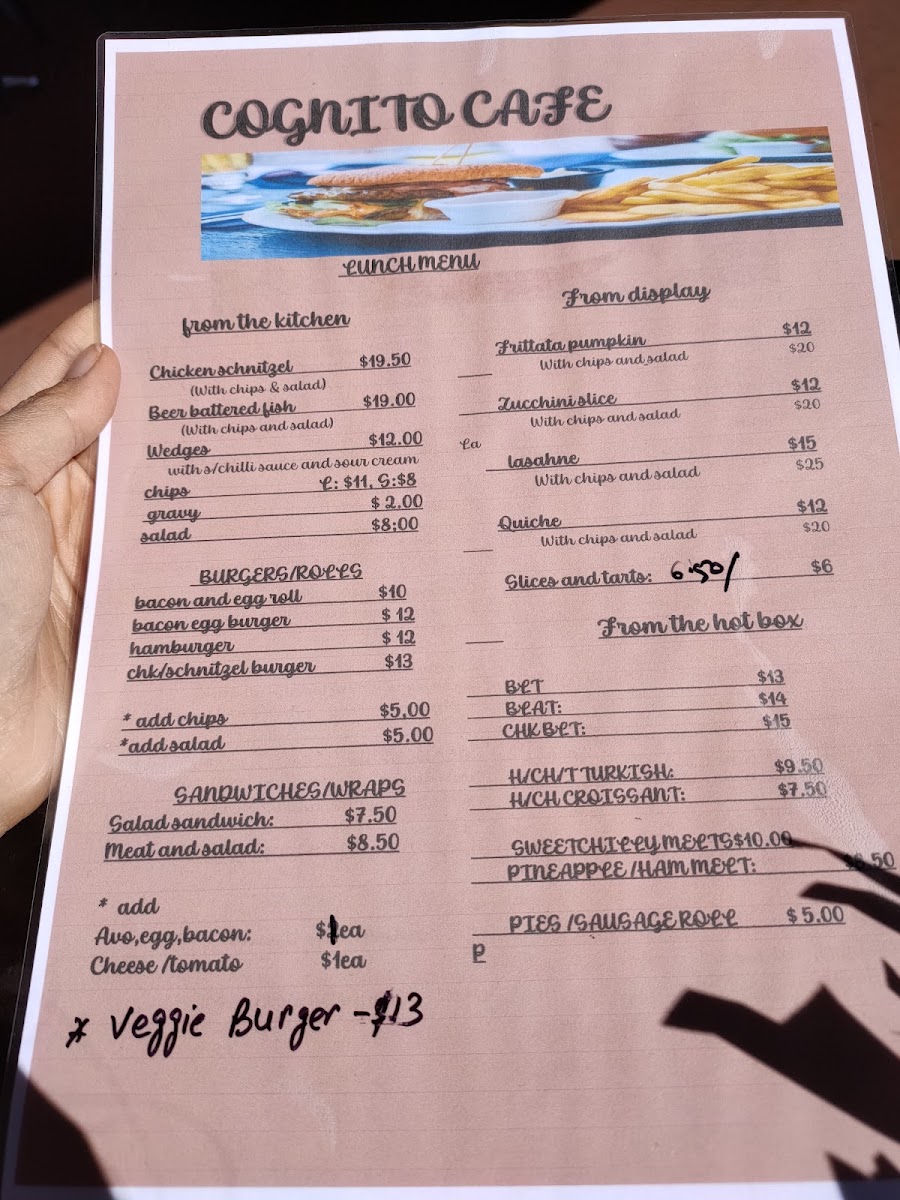 COGNITO CAFE
LUNCH MENU
from the kitchen
Chicken schnitzel $19.50
(With chips & salad)
Beer battered fish $19.00
(With chips and salad)
Wedges $12.00
with s/chilli sauce and sour cream
chips L: $11, S:$8
gravy $ 2.00
salad $8;00
BURGERS/ROLLS
bacon and egg roll $10
bacon egg burger $ 12
hamburger $ 12
chk/schnitzel burger $13
* add chips $5,00
*add salad $5.00
SANDWICHES/WRAPS
Salad sandwich: $7.50
Meat and salad: $8.50
* add
Avo,egg,bacon: $1ea
Cheese /tomato $1ea
* Veggie Burger - $13
From display
Frittata pumpkin $12
With chips and salad $20
Zucchini slice $12
With chips and salad $20
La
lasahne $15
With chips and salad $25
Quiche $12
With chips and salad $20
Slices and tarts: 6.50/ $6
From the hot box
BLT $13
BLAT: $14
CHK BLT: $15
H/CH/T TURKISH: $9.50
H/CH CROISSANT: $7.50
SWEETCHILLY MELTS$10.00
PINEAPPLE /HAM MELT: .50
PIES /SAUSAGE ROLL $ 5.00
P